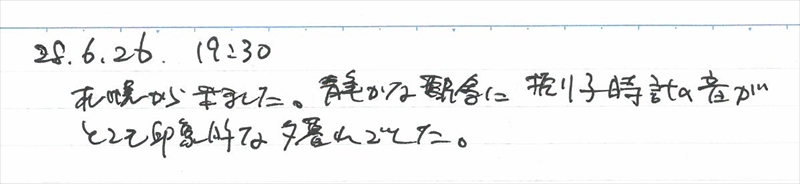 28.6.26. 19:30
札幌から来ました。静かな駅舎に振り子時計の音が
とても印象的な夕暮れでした。